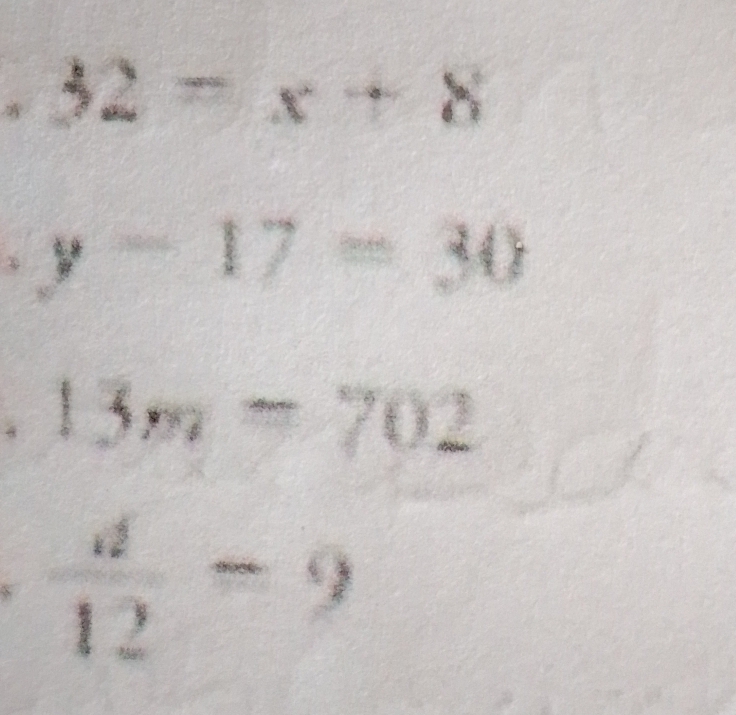 . 32 = x + 8
. y - 17 = 30
. 13m = 702
. d/12 = 9